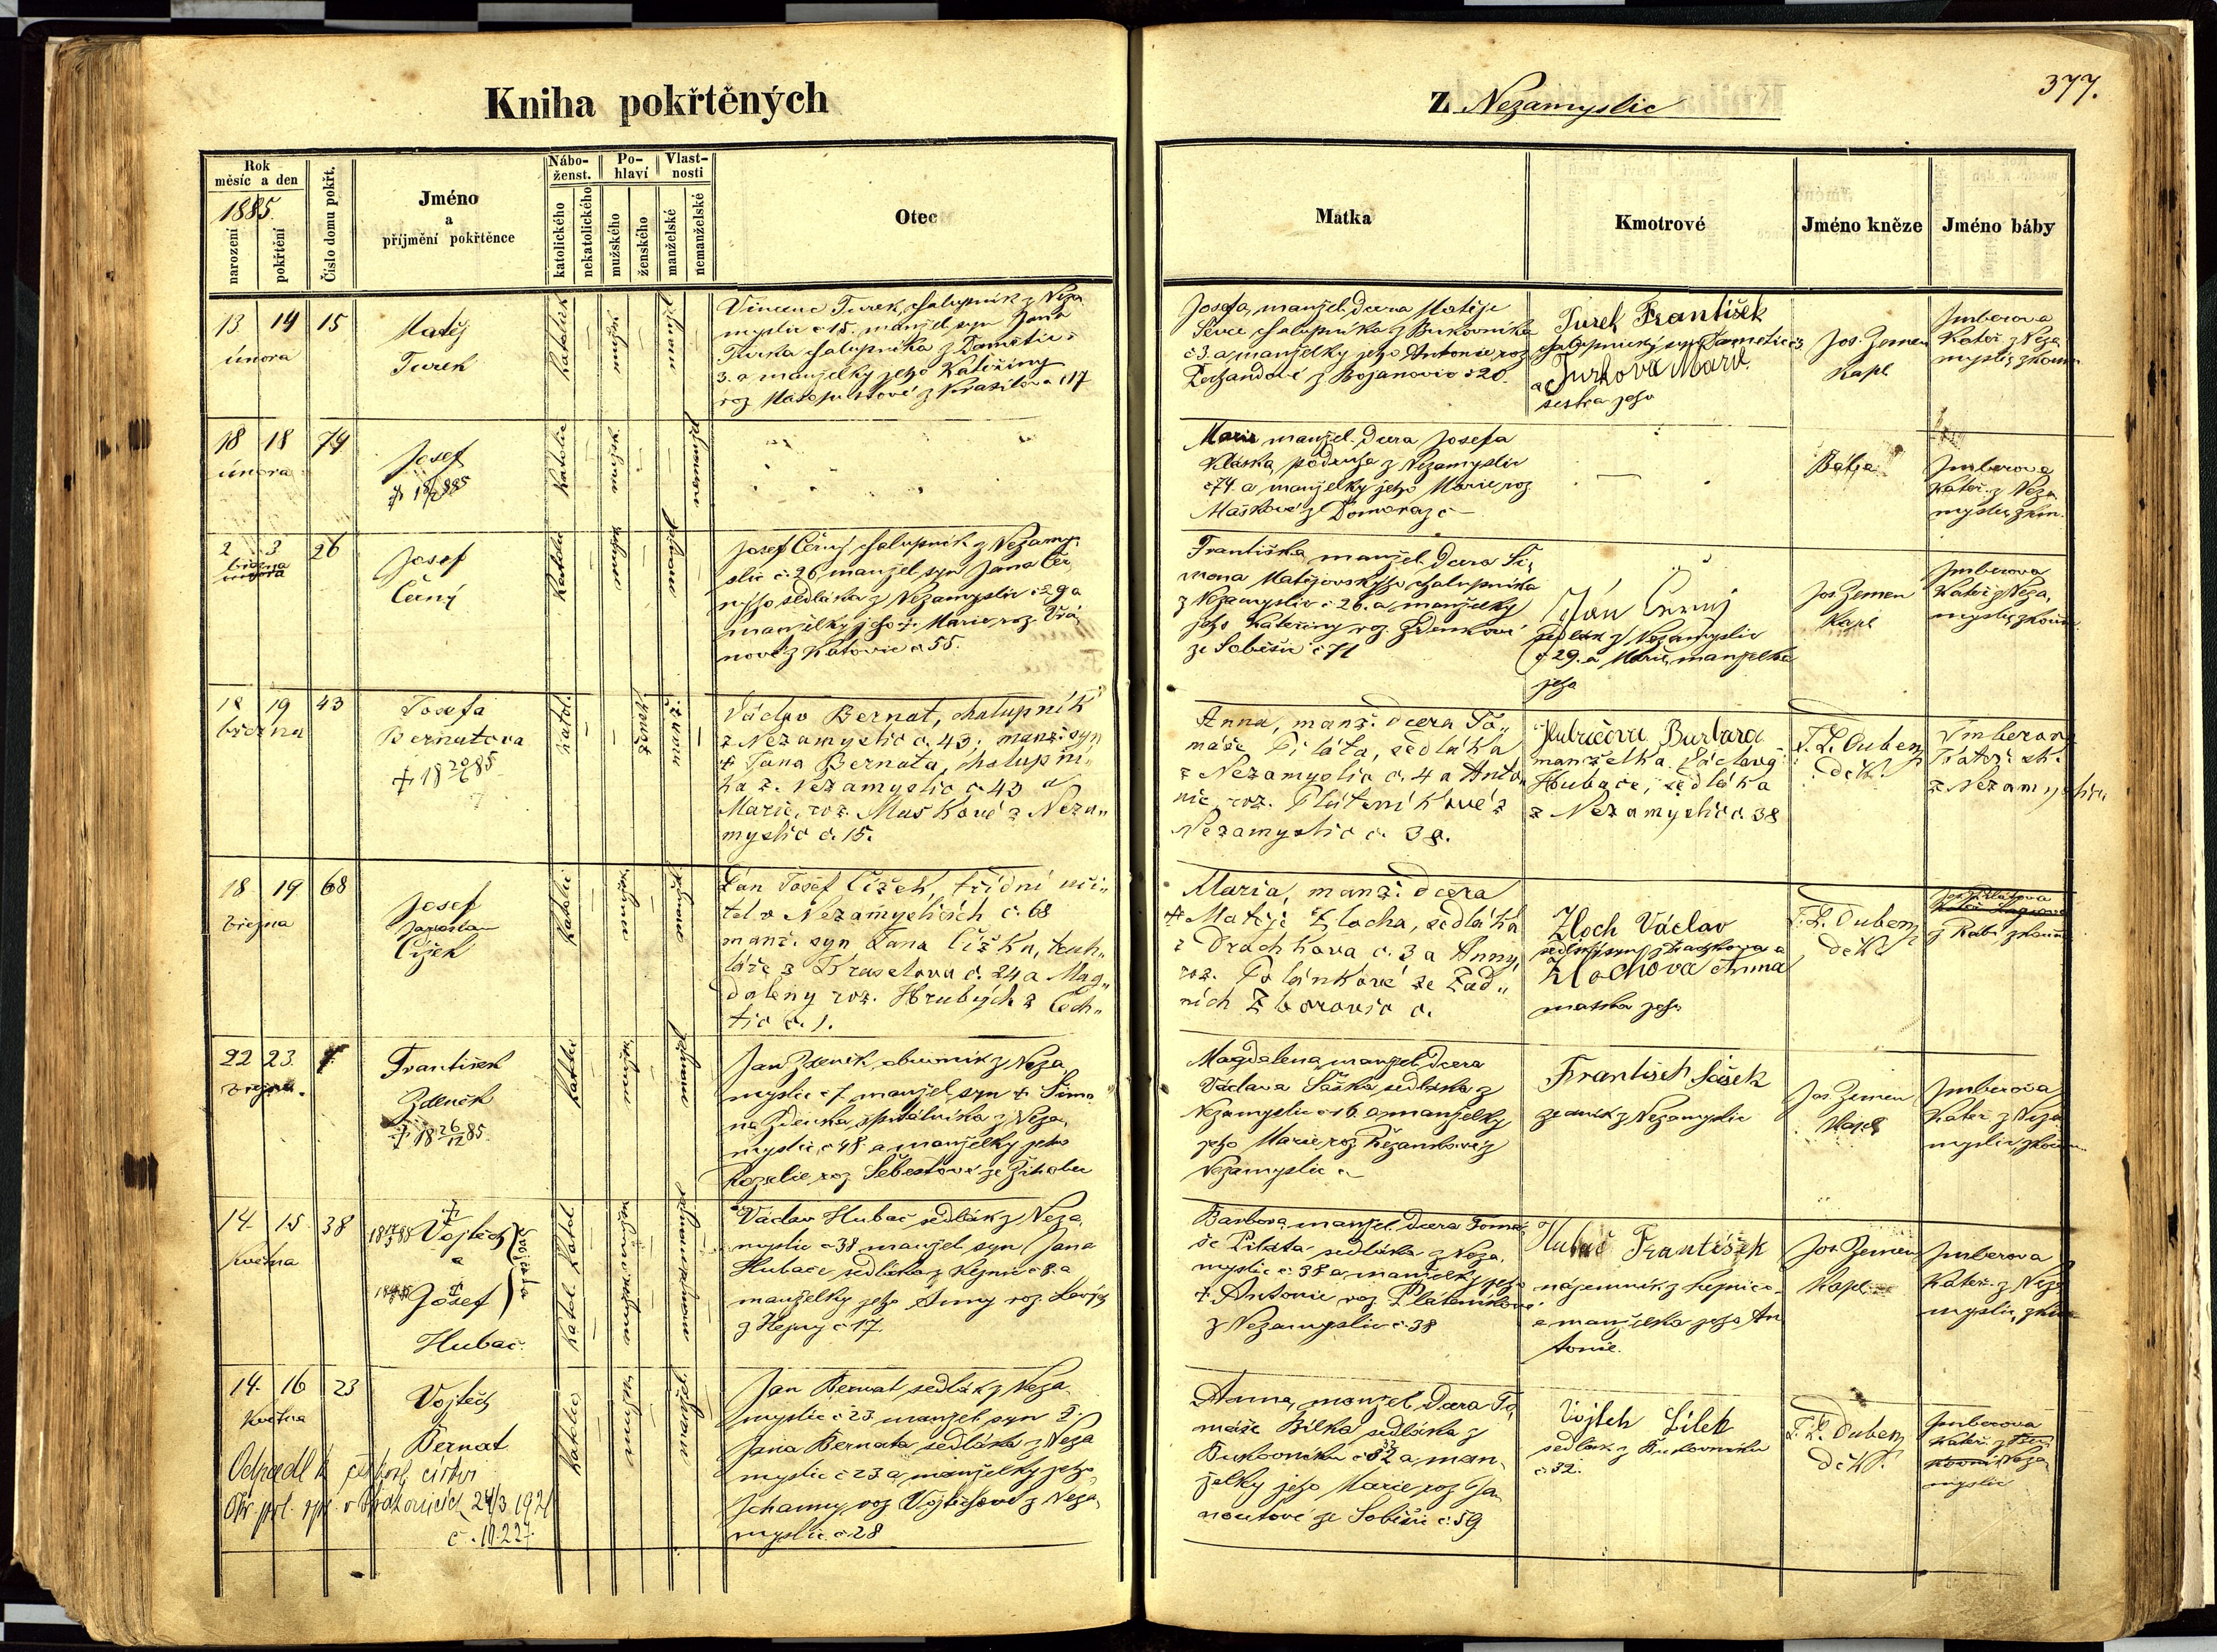 Kniha pokřtěných
z Nezamyslic
377.
Rok
měsíc a den
1885.
narození
pokřtění
Číslo domu pokřt.
Jméno
a
příjmění pokřtěnce
Nábo-
ženst.
katolického
nekatolického
Po-
hlaví
mužského
ženského
Vlast-
nosti
manželské
nemanželské
Otec
Matka
Kmotrové
Jméno kněze
Jméno báby
13 14 15
února
Matěj
Turek
Vincenc Turek, chalupník z Neza
myslic č 15. manžel. syn Jana
Turka chalupníka z
3. a manželky jeho Kateřiny
roz. z
Josefa, manžel. dcera Matěje
chalupníka z Bukovníka
č 3. a manželky jeho Antonie roz
z Bojanovic č 20.
Turek František
a Turková Marie
sestra jeho
Jos. Zemen
Kapl
Imberova
Kateř. z Neza
myslic, zkouš
18 18 74
února
Josef
Marie manžel. dcera Josefa
podruha z Nezamyslic
č 74. a manželky jeho Marie roz
Maškové z Domoraz č —
Imberova
Kateř. z Neza
myslic zkou.
2 3 26
března
Josef
Černý
Josef Černý chalupník z Nezamy-
slic č. 26, manžel. syn Jana Čer
nyho sedláka z Nezamyslic č 29 a
manželky jeho Marie roz. Vrá
nové z Katovic č 55.
Františka manžel. dcera Ši
mona Matějovskyho chalupníka
z Nezamyslic č 26. a manželky
jeho Kateřiny roz. Zdenkové
ze Soběšic č 71
Jan Černý
sedlák z Nezamyslic
č 29. a Marie, manželka
jeho
Jos. Zemen
Kapl
Imberova
Kateř. z Neza
myslic, zkouš
18 19 43
března
Josefa
Bernatova
Václav Bernat, chalupník
z Nezamyslic č. 43; manž. syn
† Jana Bernata, chalupní-
ka z Nezamyslic č. 43 a
Marie, roz. Maškové z Neza-
myslic č. 15.
Anna, manž. dcera To-
máše Piláta, sedláka
z Nezamyslic č. 4 a Anto-
nie, roz. Pláteníkové z
Nezamyslic č. 38.
Hubičova Barbara
manželka Václava
Hubače, sedláka
z Nezamyslic č. 38
F. L. Dubenz
děk.
Imberova
z Nezamyslic
18 19 68
března
Josef
Jaroslav
Čížek
Pan Josef Čížek, třídní uči-
tel v Nezamyslicích č. 68
manž. syn Jana Čížka, truh-
láře z Kraselova č. 24 a Mag-
daleny roz. Hrubých z Čech-
tic č. 1.
Maria, manž. dcera
† Matěje Zlocha, sedláka
z Drachkova č. 3 a Anny,
roz. Polánkové ze Zad-
ních Zborovic č.
Zloch Václav
Zlochova Anna
matka jeho
F. L. Dubenz
děk.
22 23. 7.
března.
František
Zdeněk
† 18 26/12 85.
Jan Zdeněk, z Neza
myslic č 7. manžel. syn † Šimo
na Zdenka, z Neza
myslic č 48 a manželky jeho
Rozalie roz. Šebestové ze Žihobec
Magdalena, manžel. dcera
Václava Šáška sedláka z
Nezamyslic č 16 a manželky
jeho Marie roz. z
Nezamyslic č
František Sášek
z Nezamyslic
Jos. Zemen
Kapl
Imberova
Kateř. z Neza
myslic, zkouš
14. 15. 38
Května
Vojtěch
a
Josef
Hubač
dvojčata
Václav Hubač sedlák z Neza
myslic č 38 manžel. syn Jana
Hubače sedláka z Kejnic č 8. a
manželky jeho Anny roz.
z Hejny č 17.
Barbora, manžel. dcera Tomá
še Piláta sedláka z Neza
myslic č. 38 a manželky jeho
† Antonie roz. Pláteníkové
z Nezamyslic č. 38
Hubač František
nájemník z Kejnic
a manželka jeho An
tonie.
Jos. Zemen
Kapl.
Imberova
Kateř. z Neza
myslic, zkou
14. 16 23
Května
Vojtěch
Bernat
Jan Bernat, sedlák z Neza
myslic č 23. manžel. syn †
Jana Bernata sedláka z Neza
myslic č 23 a manželky jeho
Johanny roz. Vojtěchové z Neza
myslic č 28
Anna, manžel. dcera To
máše Bílka sedláka z
Bukovníka č 32 a man
želky jeho Marie roz. Ja
noutové ze Soběšic č. 59
Vojtěch Bílek
sedlák z Bukovníka
č 32.
F. L. Dubenz
děk.
Imberova
Kateř. z
Neza
myslic
Odpadl k českosl. církvi
v Strakonicích 24/3 1921
č. 10.227.